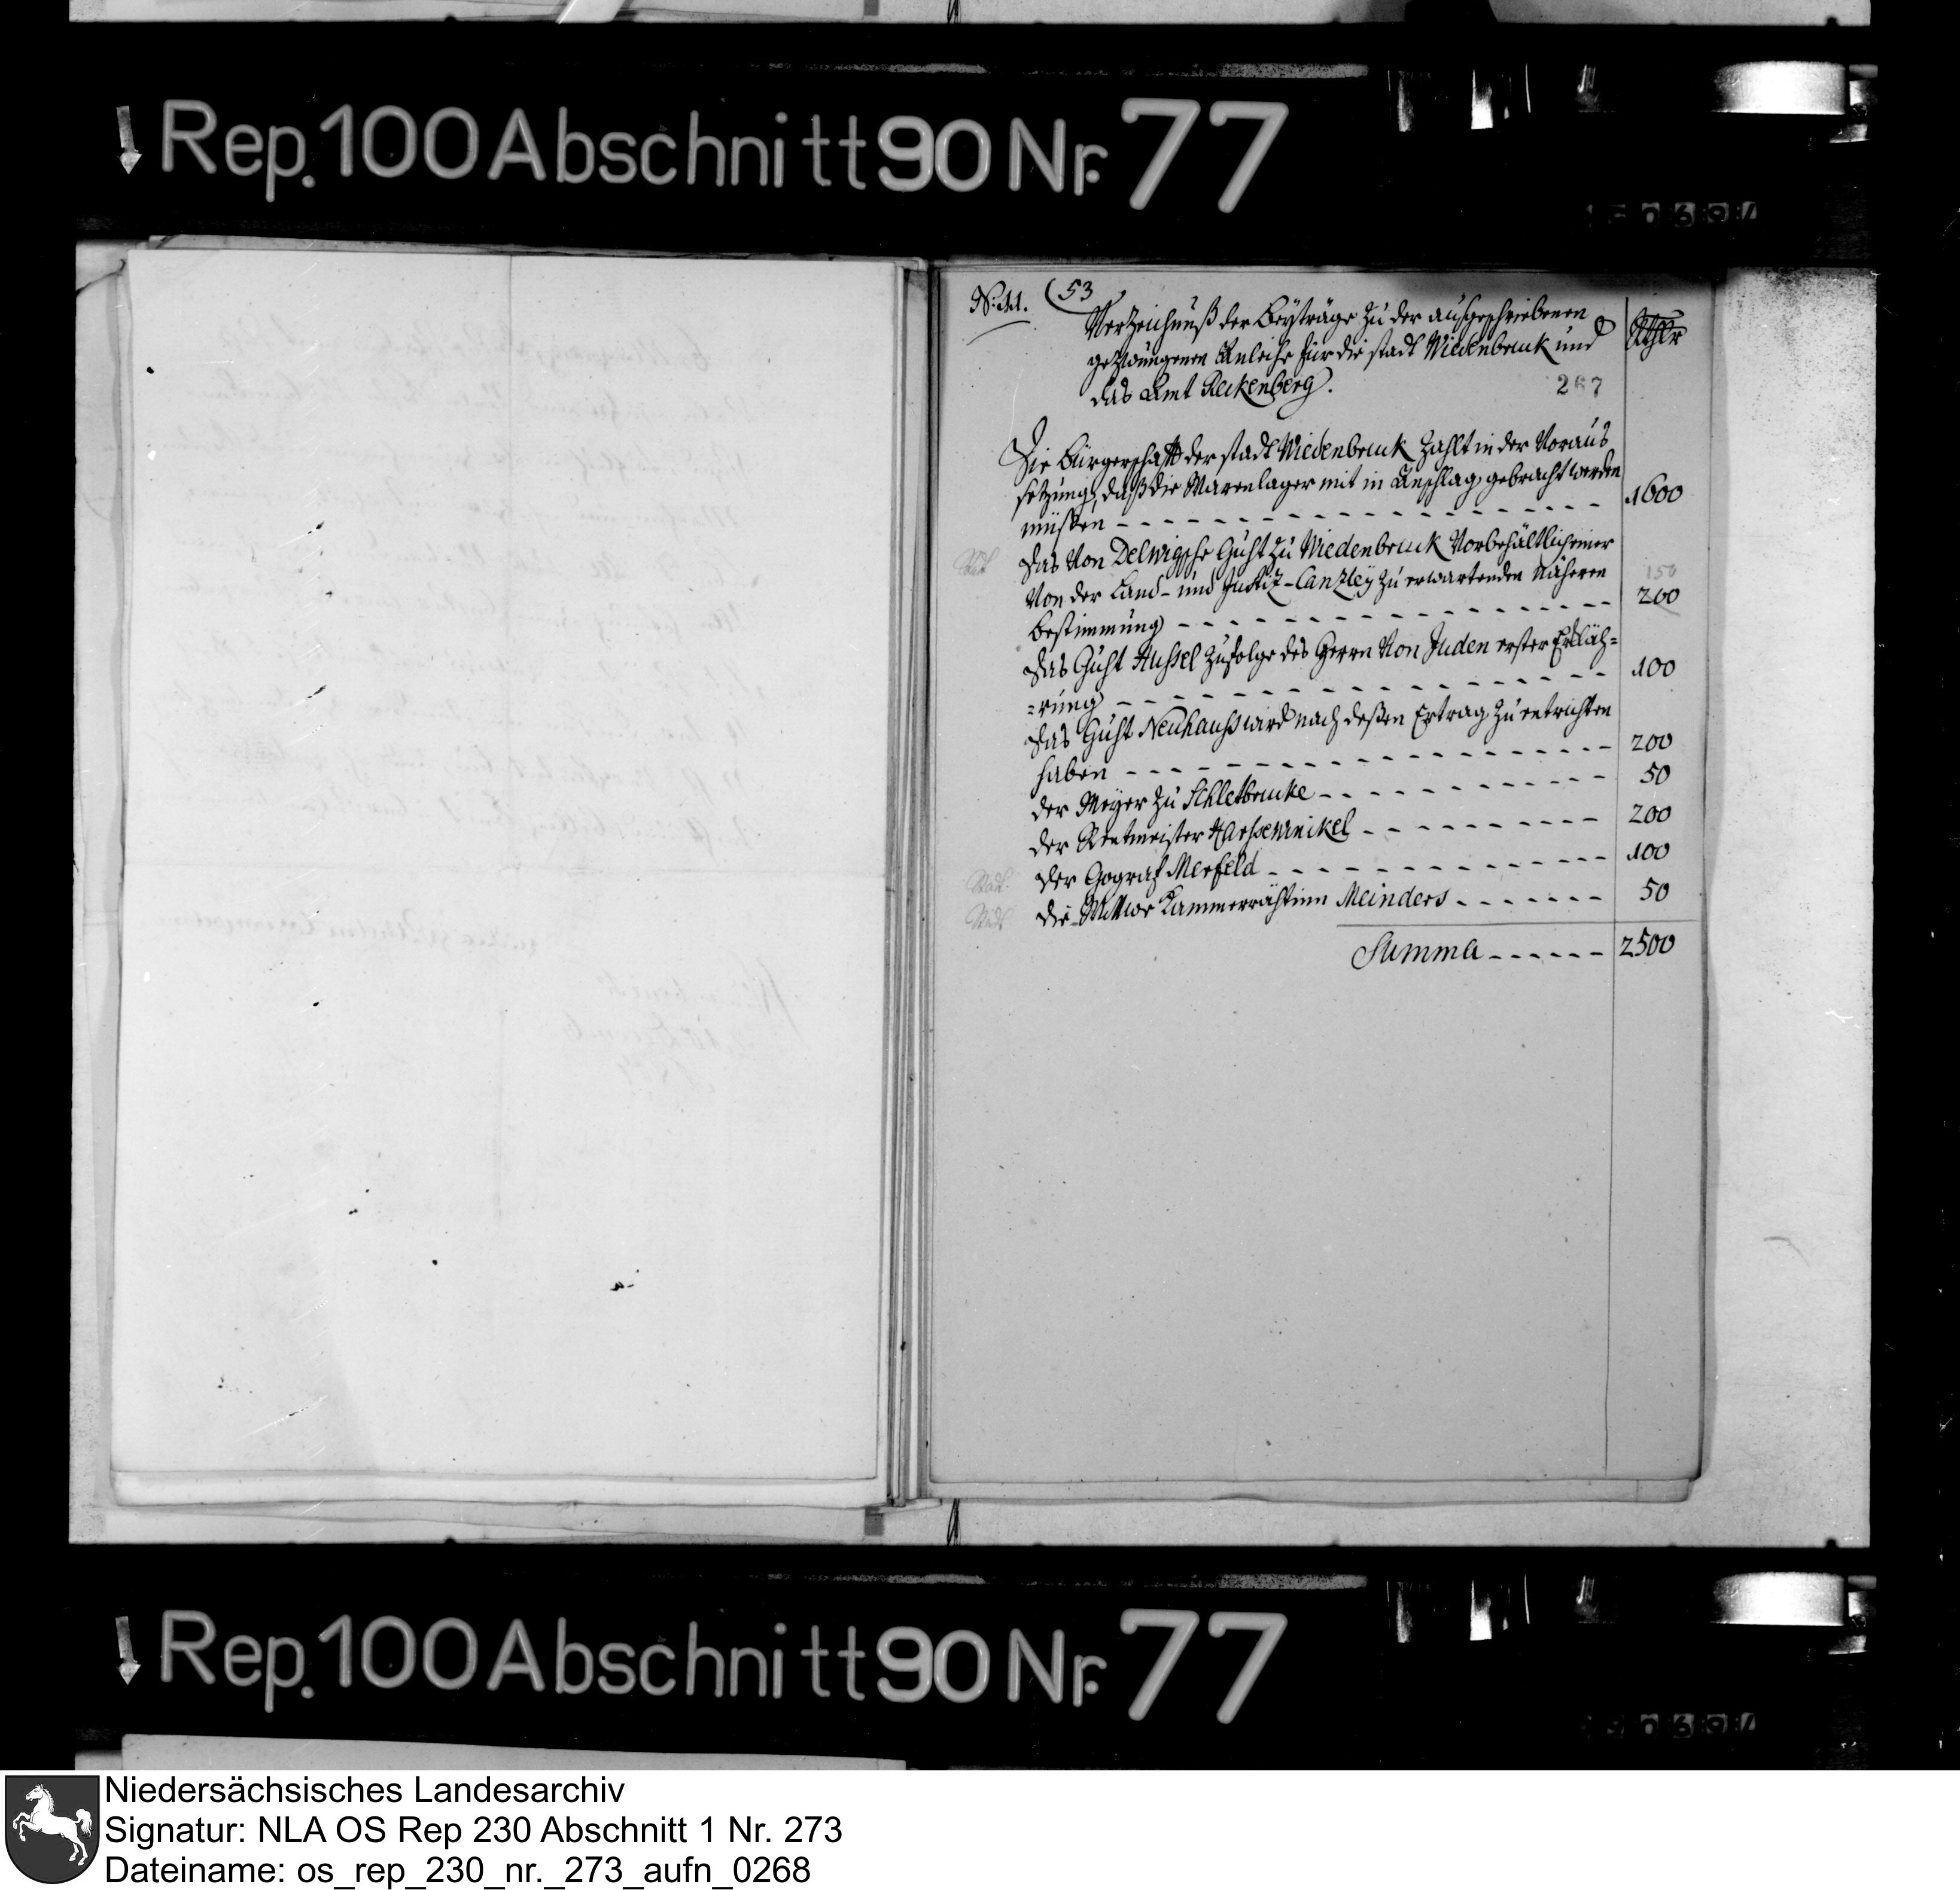 Rep. 100 Abschnitt 90 Nr. 77
N: 11. (53
Verzeichnüß der Beyträge zu der ausgeschriebenen
gezwüngenen Anleihe für die stadt Wiedenbruk und
das Amt Reckenberg.
Rthlr
267
Die Bürgerschaft der stadt Wiedenbruk zahlt in der Voraus
setzung, daß die Warenlager mit in Anschlag gebracht werden
müssen - - - 1600
das von Delwigsche Guht zu Wiedenbruk vorbehältlich einer
von der Land- und Justiz-Canzley zu erwartenden näheren 150
bestimmung - - - 200
das Guht Aussel zufolge des Herrn von Juden erster Erkläh=
=rung - - - 100
das Guht Neuhauss wird nach deßen Ertrag zu entrichten
haben - - - 200
der Meyer zu Schletbruke - - - 50
der Rentmeister Harsewinkel - - - 200
der Gograf Merfeld - - - 100
die Wittwe Kammerrähtinn Meinders - - - 50
Summa - - - 2500
Rep. 100 Abschnitt 90 Nr. 77
Niedersächsisches Landesarchiv
Signatur: NLA OS Rep 230 Abschnitt 1 Nr. 273
Dateiname: os_rep_230_nr._273_aufn_0268